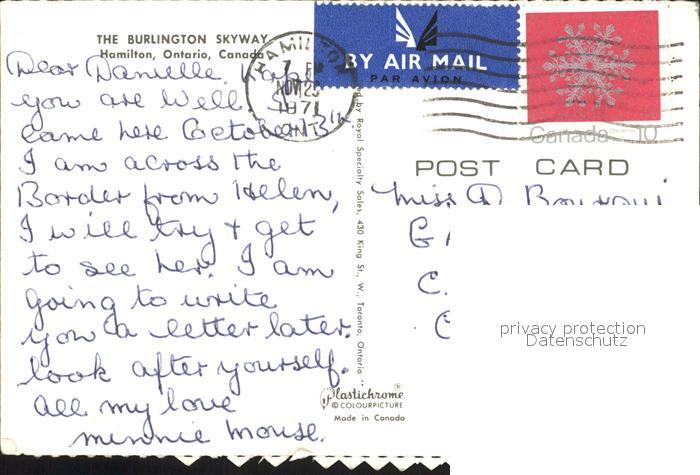 THE BURLINGTON SKYWAY
Hamilton, Ontario, Canada
Dear Danielle, hope
you are well. I
came here October 13th
I am across the
Border from Helen,
I will try + get
to see her. I am
going to write
you a letter later.
look after yourself.
all my love
minnie mouse.
HAMILTON
NOV 23
1971
ONT
BY AIR MAIL
PAR AVION
Canada 10
POST CARD
by Royal Specialty Sales, 430 King St., W., Toronto, Ontario
Miss D
G
C.
C
privacy protection
Datenschutz
Plastichrome®
© COLOURPICTURE
Made in Canada